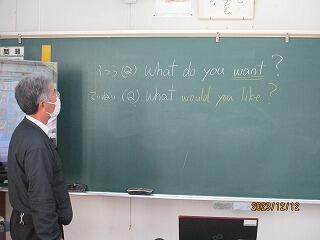 ふつう(Q) What do you want ?
ていねい(Q) What would you like ?
2023/12/12